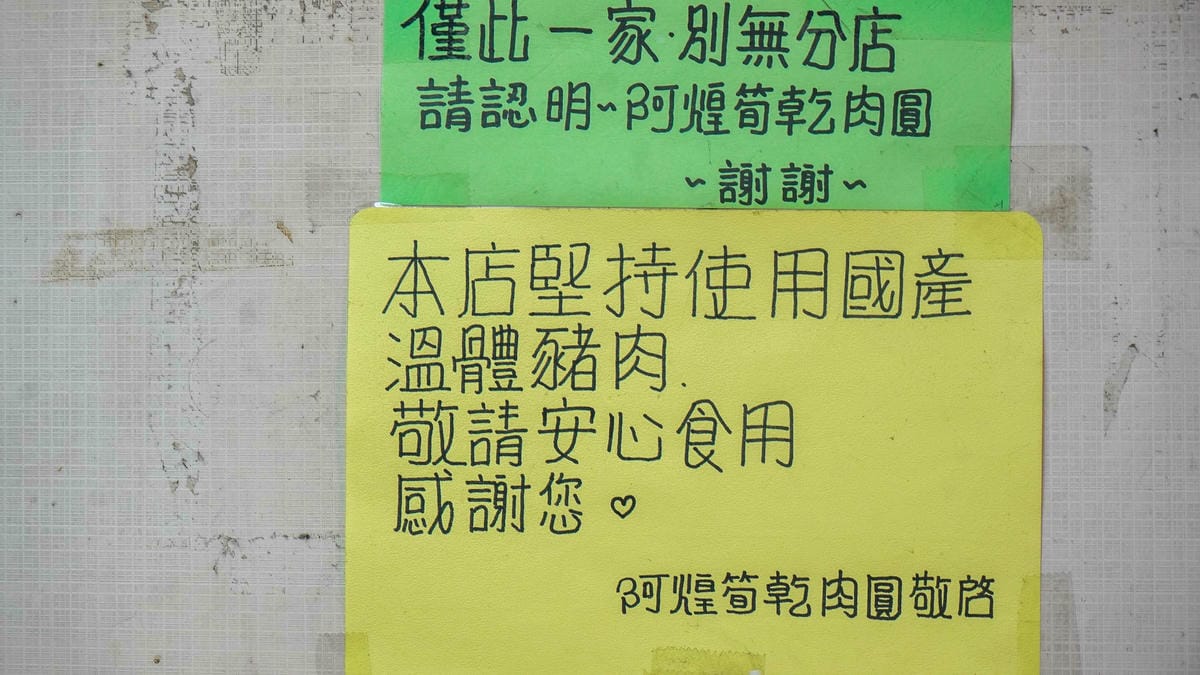 僅此一家·別無分店
請認明~阿煌筍乾肉圓
~謝謝~
本店堅持使用國產
溫體豬肉.
敬請安心食用
感謝您♡
阿煌筍乾肉圓敬啓